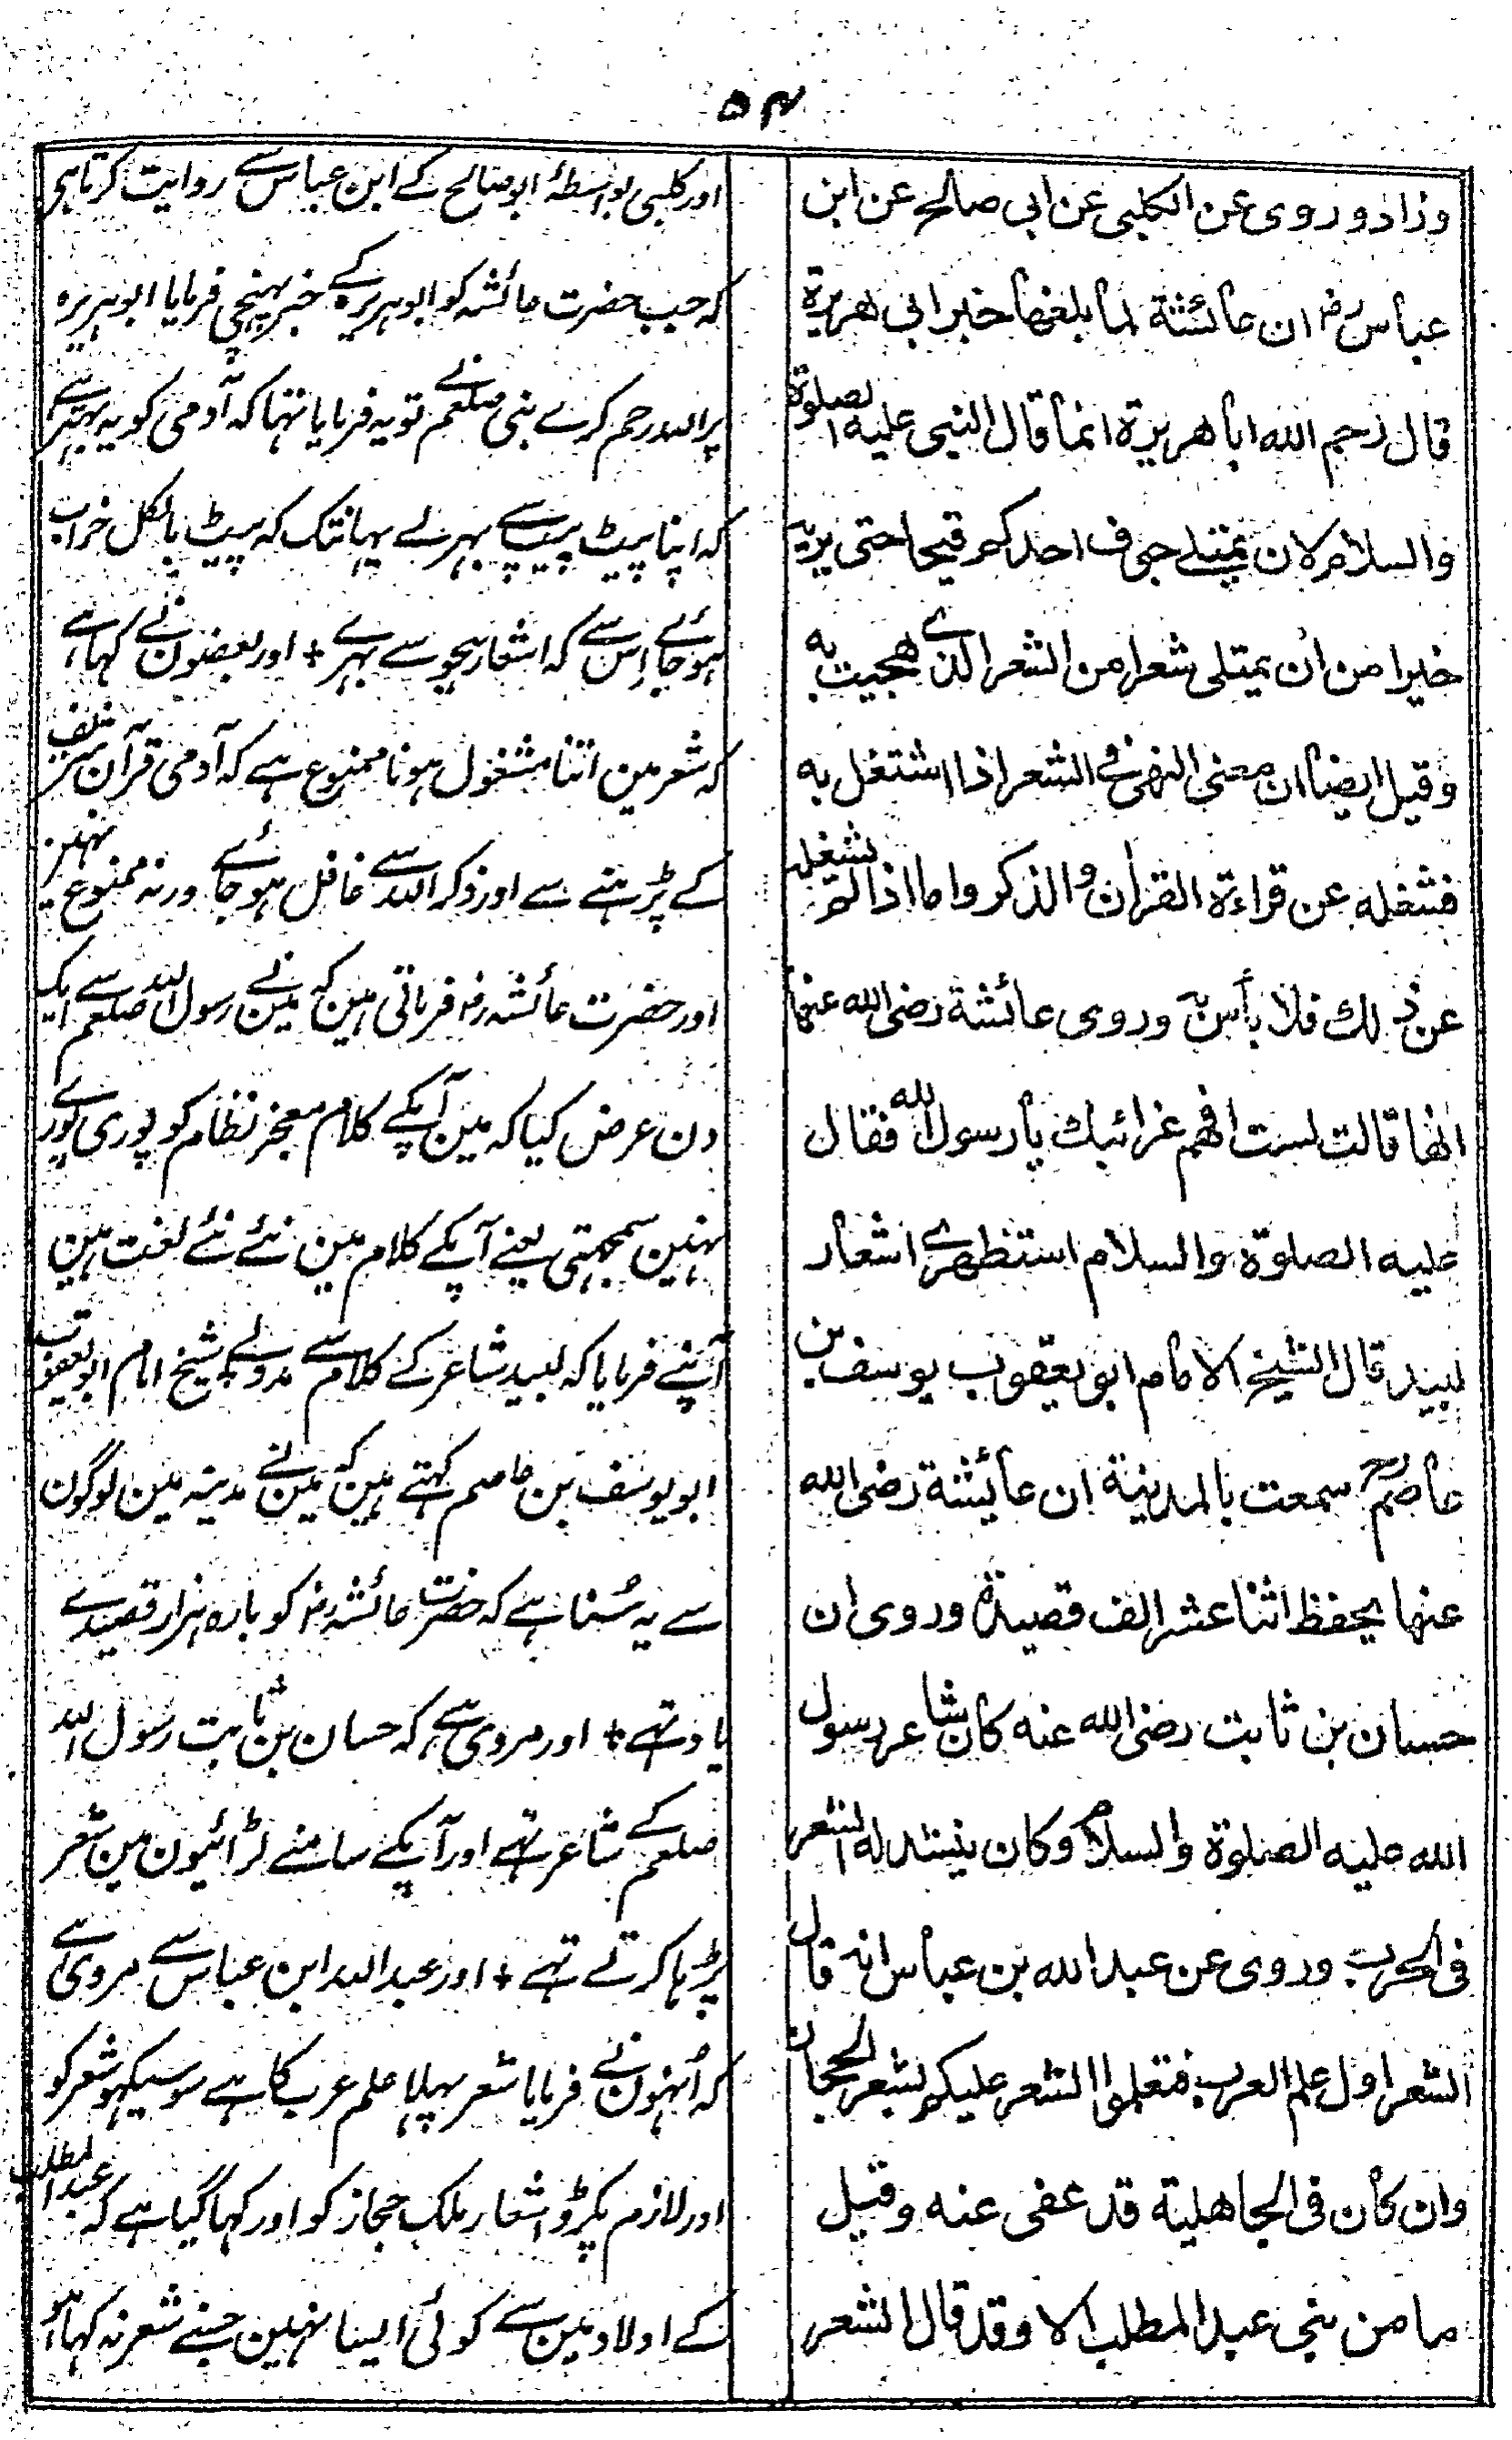 ۵۴
وزاد و روى عن الكلبي عن ابي صالح عن ابن
عباس رض ان عائشة لما بلغها خبر ابي هريرة
قال رحم الله ابا هريرة انما قال النبي عليه الصلوة
والسلام لان يمتلے جوف احدكم قيحا حتى يريه
خيرا من ان يمتلى شعرا من الشعر الذے هجيت به
وقيل ايضا ان معنى النهى فى الشعر اذا اشتغل به
فشغله عن قراءة القران والذكر واما اذا لم تشغل
عن ذلك فلا بأس به وروى عائشة رضى الله عنها
انها قالت لست افهم غرائبك يا رسول الله فقال
عليه الصلوة والسلام استظهرے اشعار
لبيد قال الشيخ الامام ابو يعقوب يوسف بن
عاصم رح سمعت بالمدينة ان عائشة رضى الله
عنها يحفظ اثنا عشر الف قصيدة وروى ان
حسان بن ثابت رضى الله عنه كان شاعر رسول
الله عليه الصلوة والسلام وكان ينشد له الشعر
فى الحرب وروى عن عبد الله بن عباس انه قال
الشعر اول علم العرب فتعلموا الشعر عليكم بشعر الحجاز
وان كان فى الجاهلية قد عفى عنه وقيل
ما من بنى عبد المطلب الا وقد قال الشعر
اور کلبی بواسطۂ ابوصالح کے ابن عباس سے روایت کرتا ہی
کہ جب حضرت عائشہ کو ابوہریرہ کے خبر پہنچی فرمایا ابوہریرہ
پر اللہ رحم کرے نبی صلعم نے تو یہ فرمایا تہا کہ آدمی کو یہ بہتر ہے
کہ اپنا پیٹ پیپ سے بہر لے یہانتک کہ پیٹ بالکل خراب
ہو جائے اس سے کہ اشعار ہجو سے بہرے + اور بعضون نے کہا ہے
کہ شعر مین اتنا مشغول ہونا ممنوع ہے کہ آدمی قرآن شریف
کے پڑہنے سے اور ذکر اللہ سے غافل ہو جائے ورنہ ممنوع نہین
اور حضرت عائشہ رض فرماتی ہین کہ مین نے رسول اللہ صلعم سے ایک
دن عرض کیا کہ مین آپکے کلام معجز نظام کو پوری پورے
نہین سمجہتی یعنے آپکے کلام مین نئے نئے لغت ہین
آپنے فرمایا کہ لبید شاعر کے کلام سے مدد لے + شیخ امام ابو یعقوب
ابو یوسف بن عاصم کہتے ہین کہ مین نے مدینہ مین لوگون
سے یہ سُنا ہے کہ حضرت عائشہ رض کو بارہ ہزار قصیدے
یاد تہے + اور مروی ہے کہ حسان بن ثابت رسول اللہ
صلعم کے شاعر تہے اور آپکے سامنے لڑائیون مین شعر
پڑہا کرتے تہے + اور عبد اللہ ابن عباس سے مروی ہے
کہ اُنہون نے فرمایا شعر پہلا علم عرب کا ہے سو سیکہو شعر کو
اور لازم پکڑو اشعار ملک حجاز کو اور کہا گیا ہے کہ عبد المطلب
کے اولاد مین سے کوئی ایسا نہین جسنے شعر نہ کہا ہو